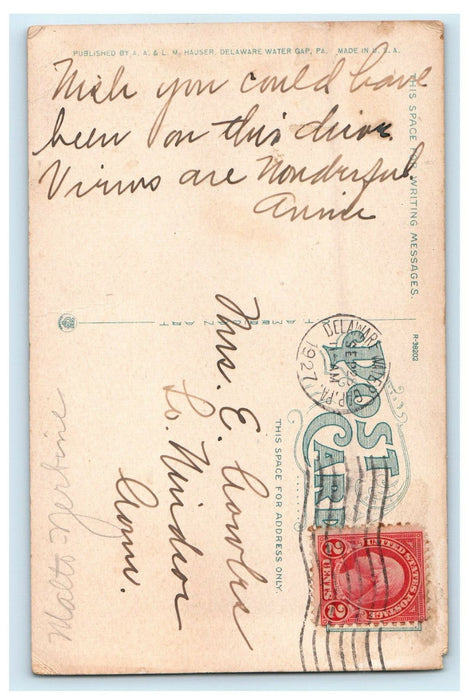 PUBLISHED BY A. A. & L. M. HAUSER, DELAWARE WATER GAP, PA. MADE IN U. S. A.
Wish you could have
been on this drive.
Views are Wonderful.
Annie
THIS SPACE FOR WRITING MESSAGES.
T AMERICAN ART
R-38202
POST
CARD
THIS SPACE FOR ADDRESS ONLY.
Mrs. E. Cowles
So. Windsor
Conn.
DELAWARE WATER GAP, PA.
SEP
AM
1927
UNITED STATES POSTAGE
2 CENTS 2